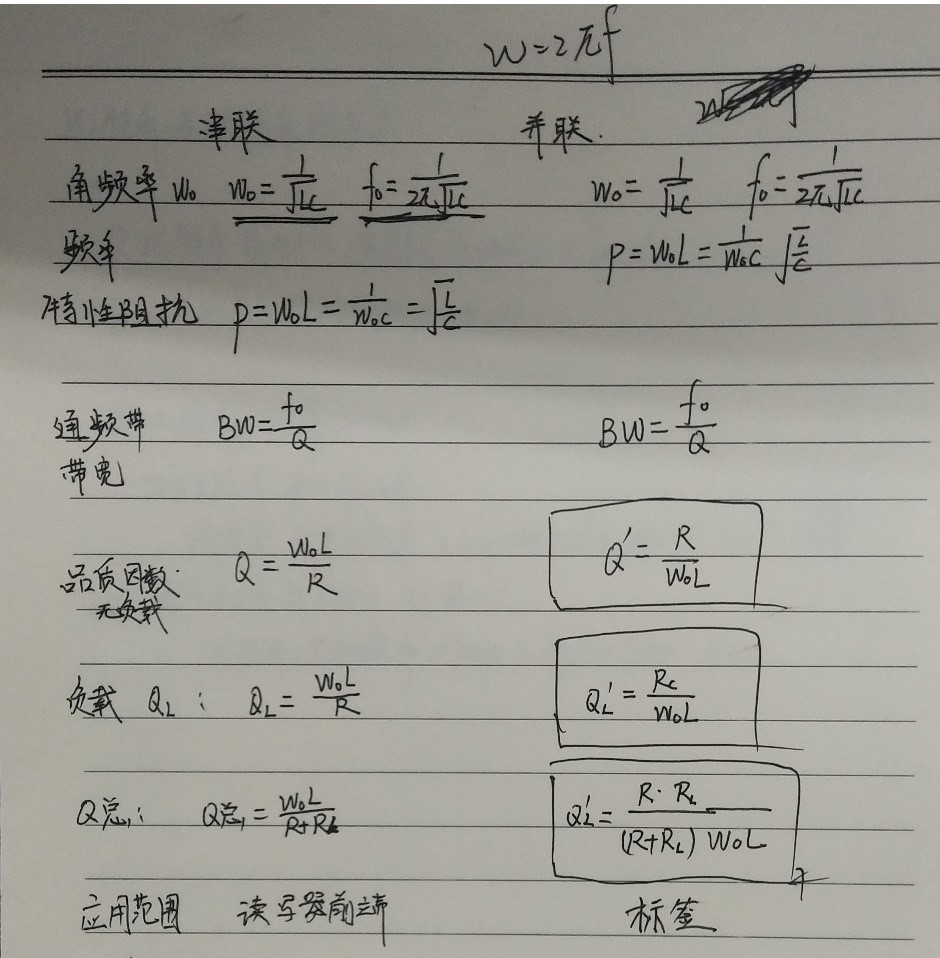 w=2πf
串联 并联.
角频率 w₀ w₀=1/√LC f₀=1/2π√LC w₀=1/√LC f₀=1/2π√LC
频率 ρ=w₀L=1/w₀C √L/C
特性阻抗 ρ=w₀L=1/w₀C=√L/C
通频带 BW=f₀/Q BW=f₀/Q
带宽
品质因数 Q=w₀L/R Q′=R/w₀L
无负载
负载 Q_L: Q_L=w₀L/R Q_L′=R_L/w₀L
Q总: Q总=w₀L/R+R_L Q_L′=R·R_L/(R+R_L)w₀L
应用范围 读写器前端 标签